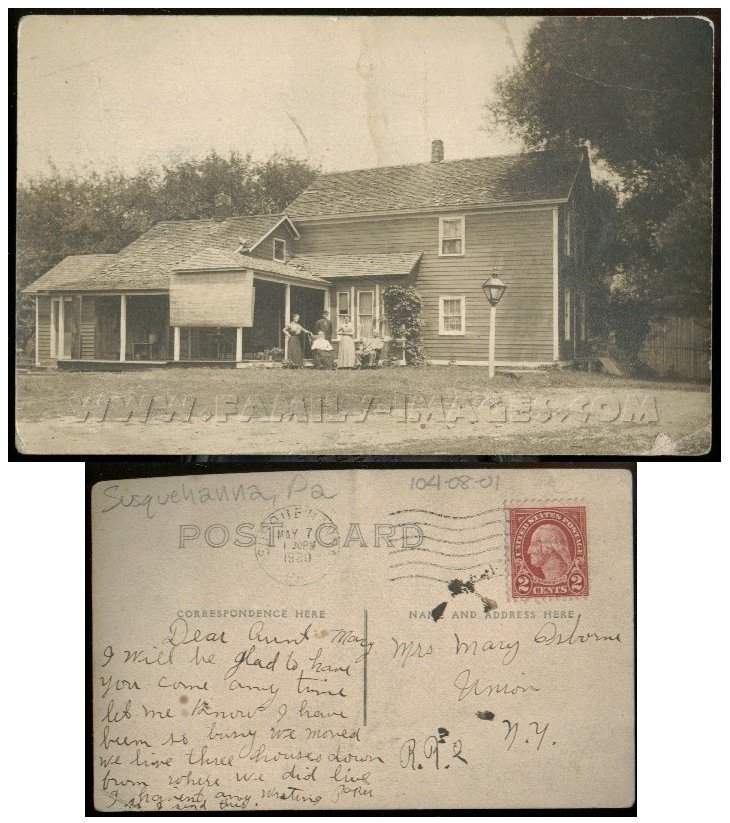 WWW.FAMILY-IMAGES.COM
Susquehanna, Pa
104-08-01
POST CARD
MAY 7
1 30PM
1930
PA.
UNITED STATES POSTAGE
2 CENTS 2
CORRESPONDENCE HERE
NAME AND ADDRESS HERE
Dear Aunt Mary
I will be glad to have
you come any time
let me know I have
been so busy we moved
we live three houses down
from where we did live
I havent any writing paper
so I send this.
Mrs Mary Osborne
Union
R.R. 2
N.Y.